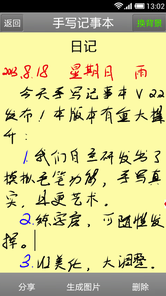 13:02
返回
手写记事本
换背景
日记
2013.8.18 星期日 雨
今天手写记事本V2.2
发布!本版本有重大提
升:
1.我们自主研发出了
模拟毛笔功能,手写真
实,且更艺术。
2.练字窗,可随性发
挥。
3.UI美化,大调整.
分享
生成图片
删除